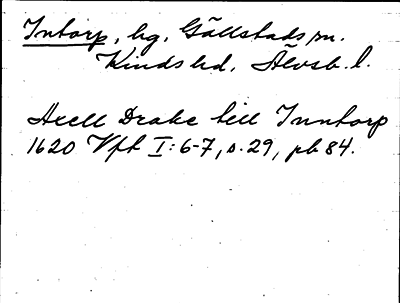 Intorp, hg, Gällstads sn.
Kinds hd, Älvsb. l.
Axell Drake till Inntorp
1620 Vft I:6-7, s. 29, pb 84.